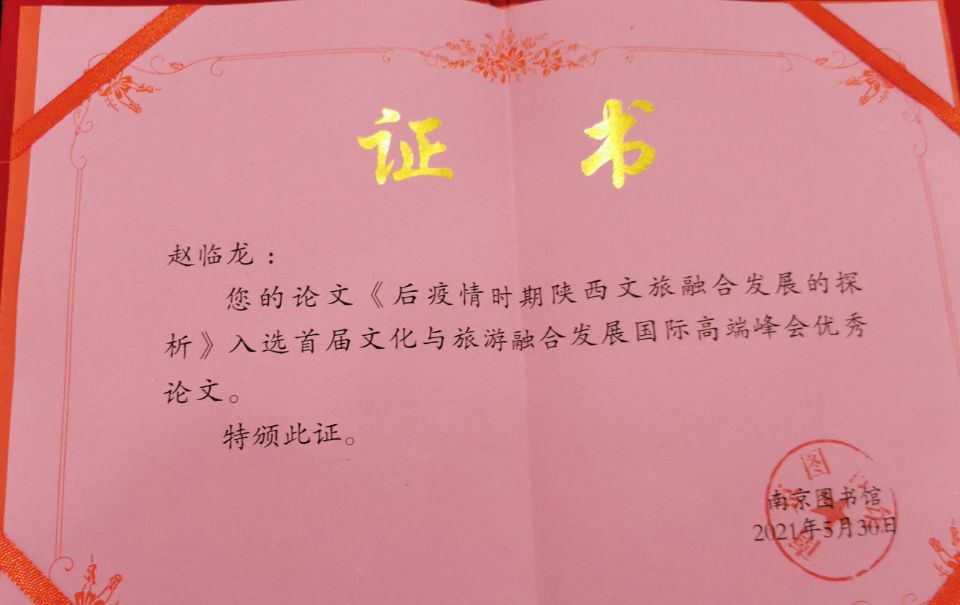 证书
赵临龙：
您的论文《后疫情时期陕西文旅融合发展的探
析》入选首届文化与旅游融合发展国际高端峰会优秀
论文。
特颁此证。
南京图书馆
2021年5月30日